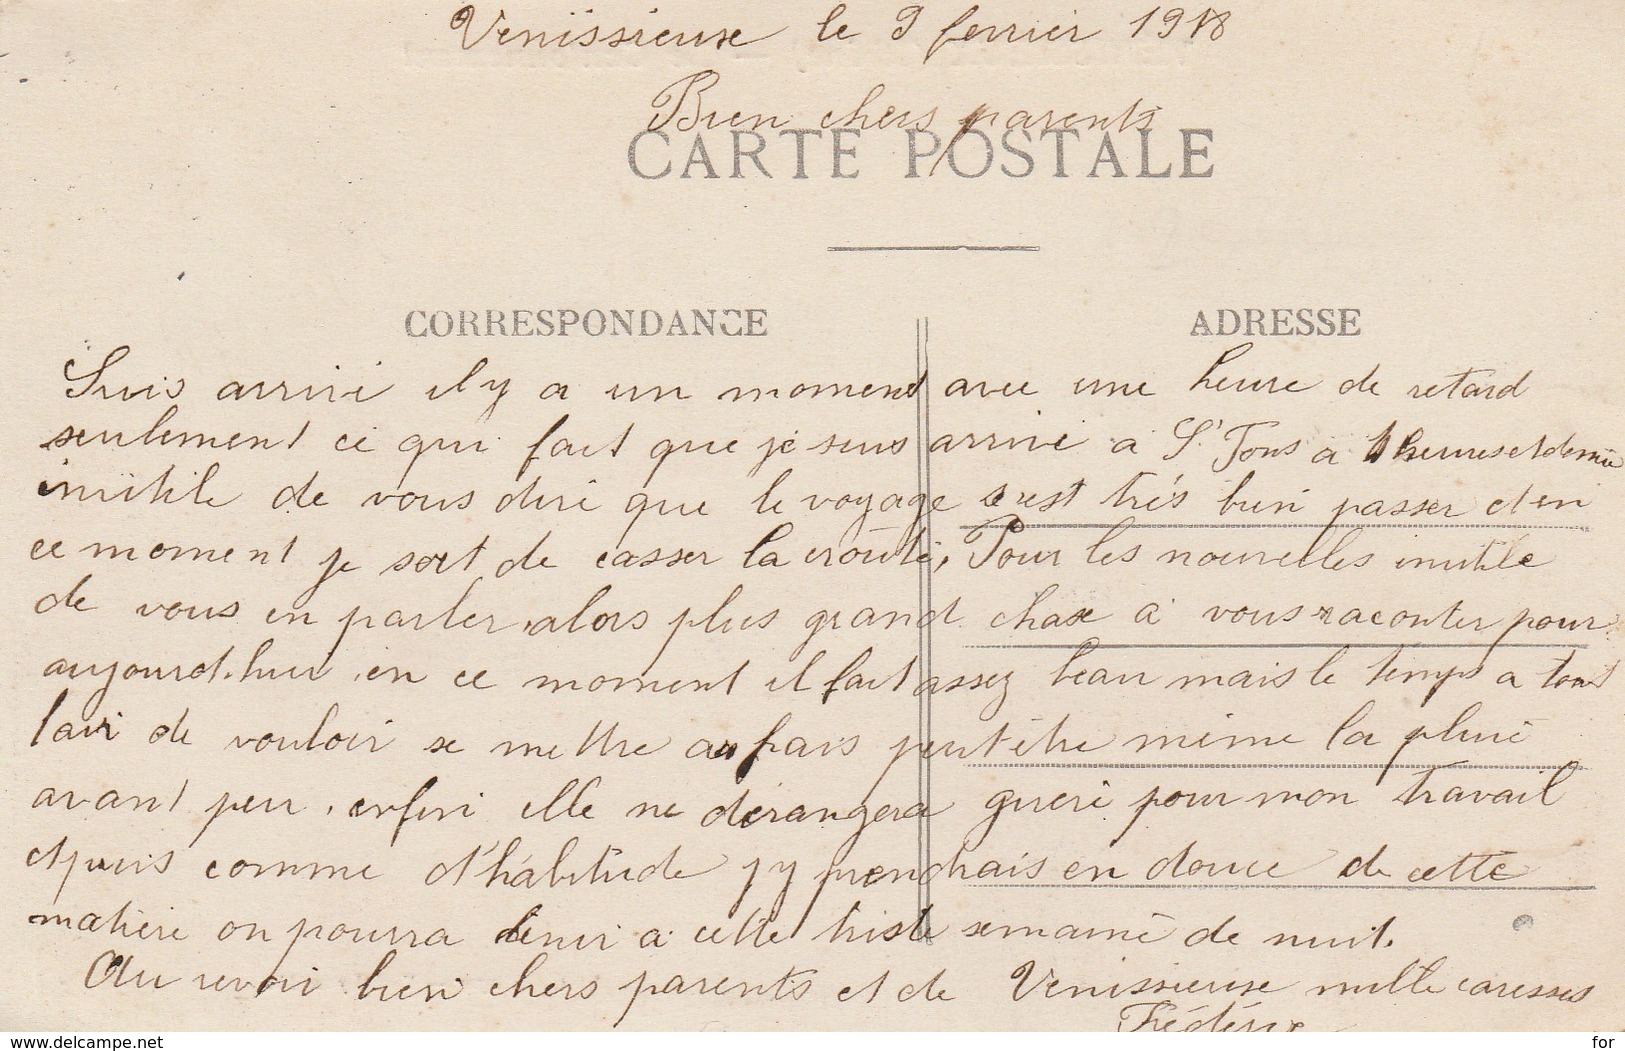 Venissieuse le 9 fevrier 1918
Bien chers parents
CARTE POSTALE
CORRESPONDANCE ADRESSE
Suis arrivé il y a un moment avec une heure de retard
seulement ce qui fait que je suis arrivé à St Fons à heures et demie
inutile de vous dire que le voyage s'est très bien passer et en
ce moment je sort de casser la croûte, Pour les nouvelles inutile
de vous en parler, alors plus grand chose à vous raconter pour
aujourd'hui, en ce moment il fait assez beau mais le temps a tout
lair de vouloir se mettre au frais peut être même la pluie
avant peu, enfin elle ne dérangera guère pour mon travail
et puis comme d'habitude j'y prendrais en douce de cette
matière on pourra tenir à cette triste semaine de nuit.
Au revoir bien chers parents et de Venissieuse mille caresses
www.delcampe.net for